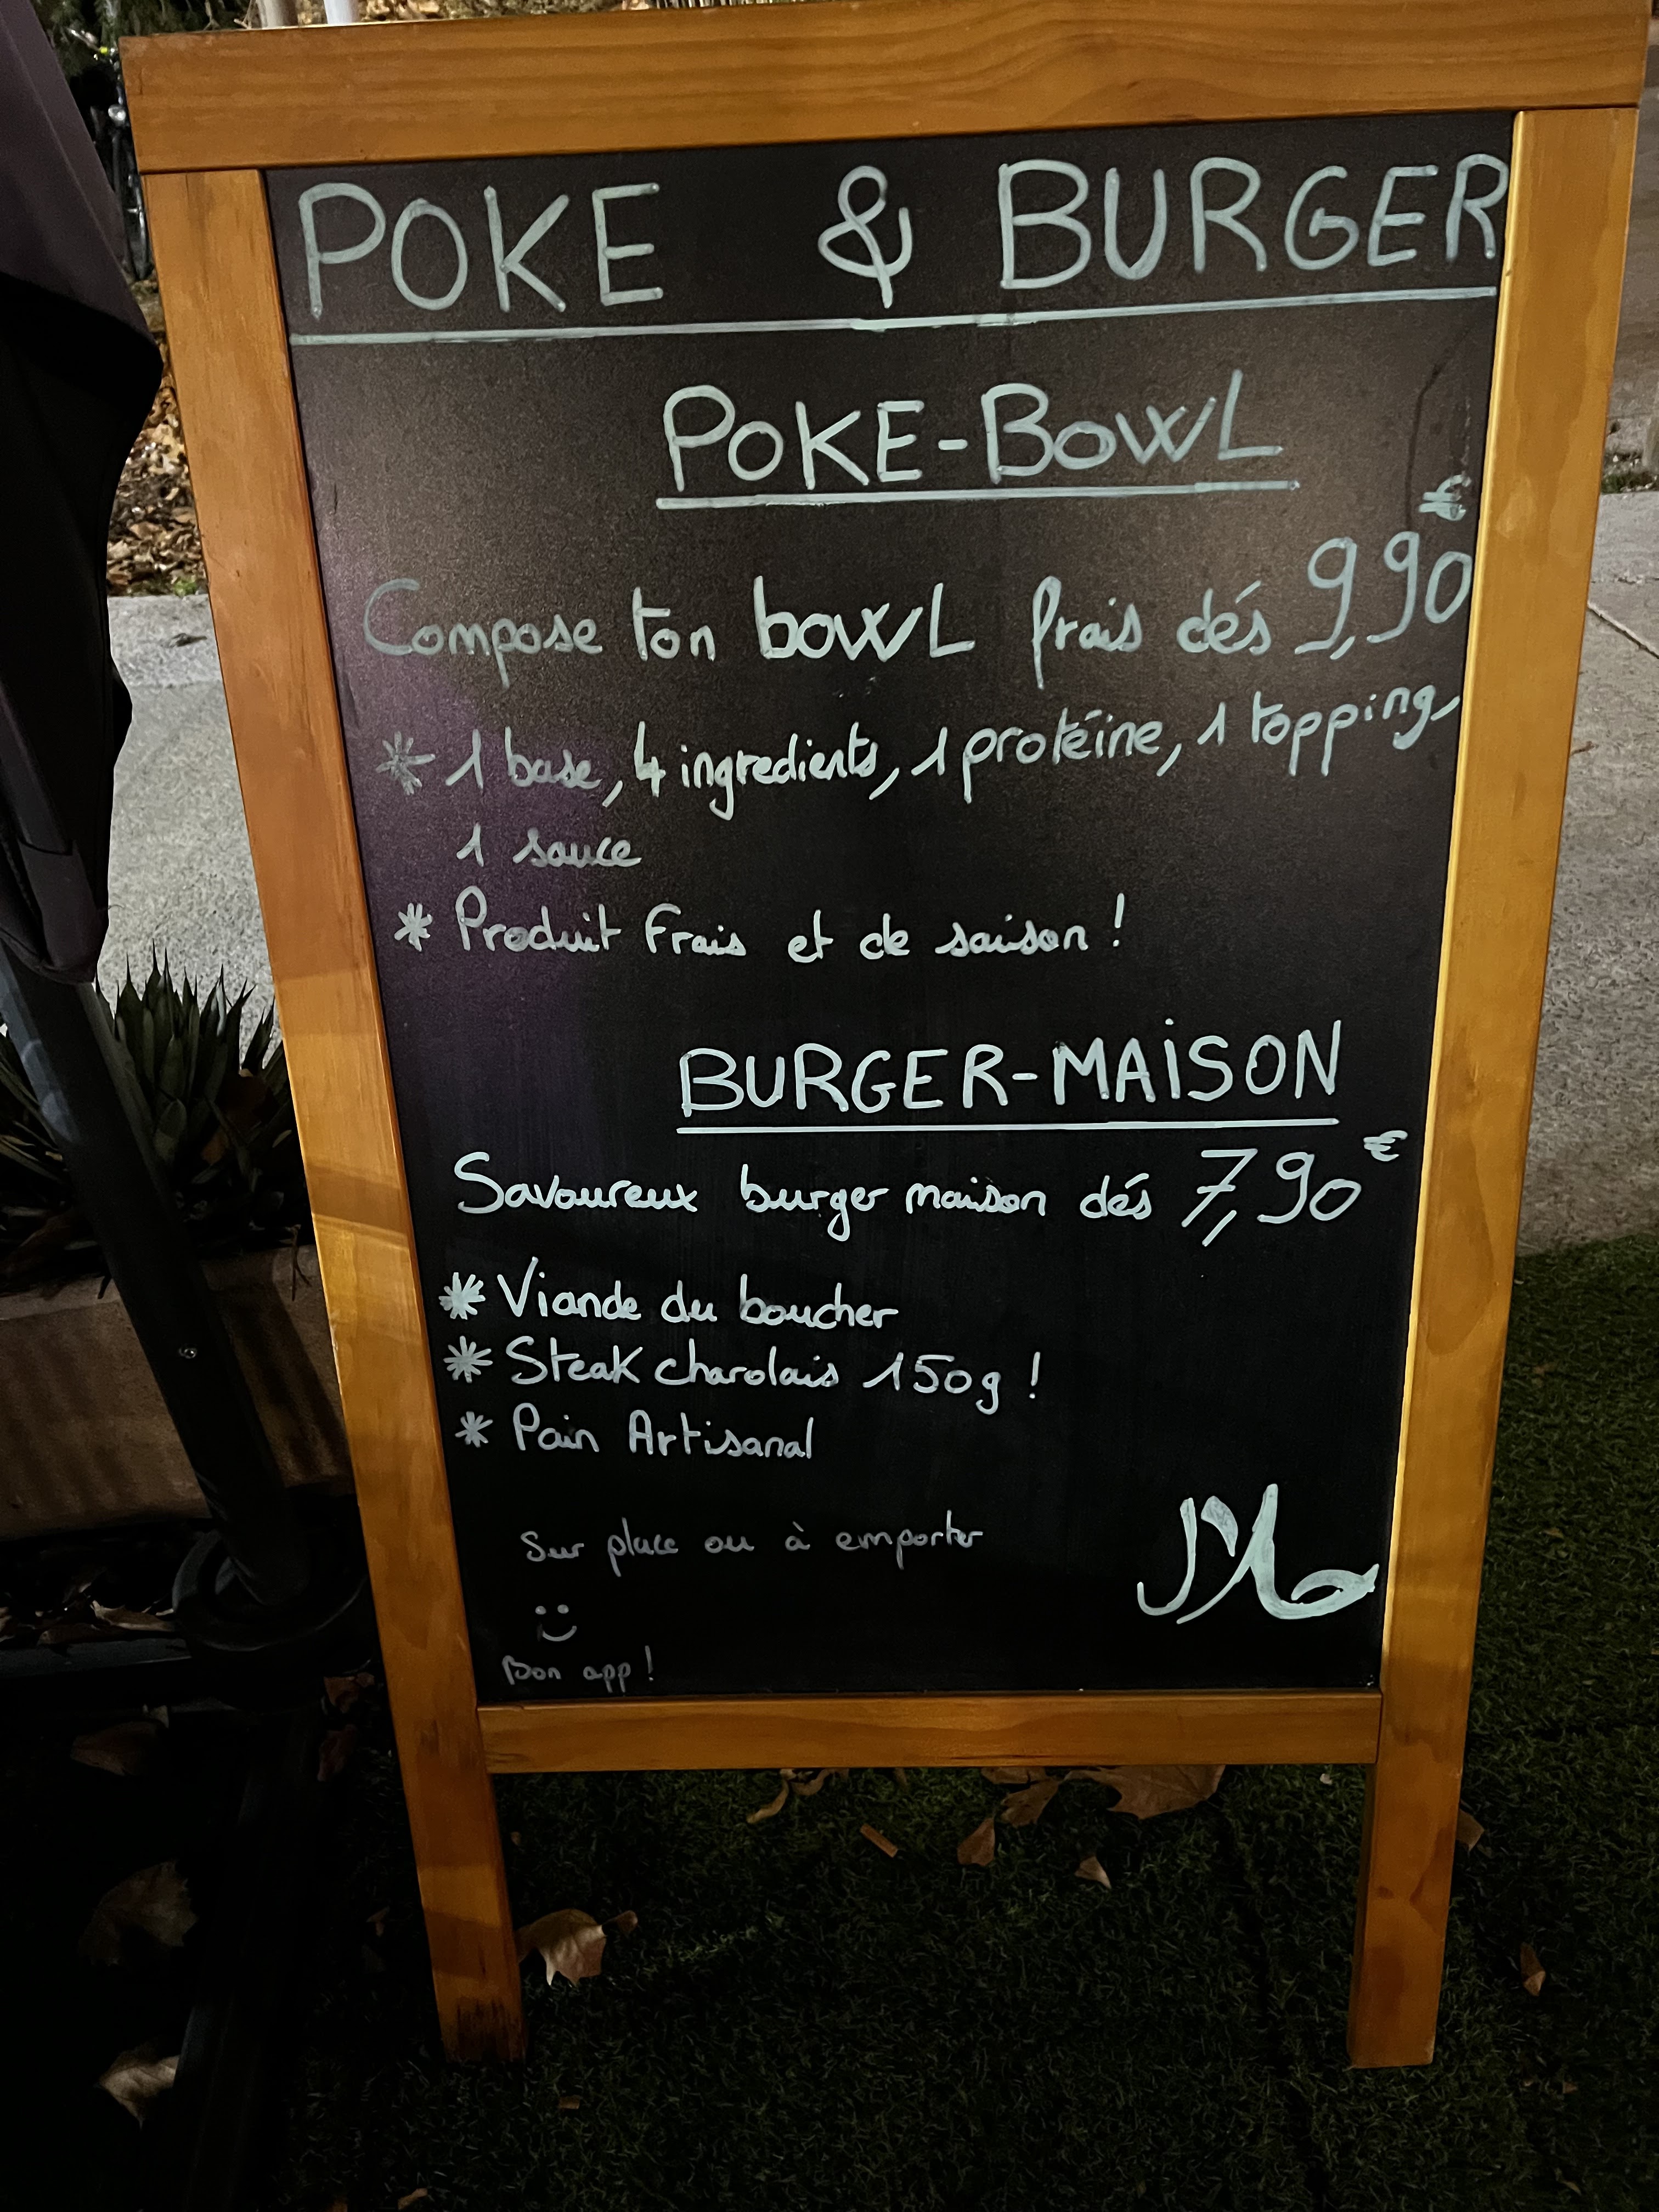 POKE & BURGER
POKE-BOWL
Compose ton bowL frais dés 9,90€
* 1 base, 4 ingredients, 1 protéine, 1 topping,
1 sauce
* Produit Frais et de saison !
BURGER-MAiSON
Savoureux burger maison dés 7,90€
* Viande du boucher
* Steak charolais 150g !
* Pain Artisanal
Sur place ou à emporter
Bon app !